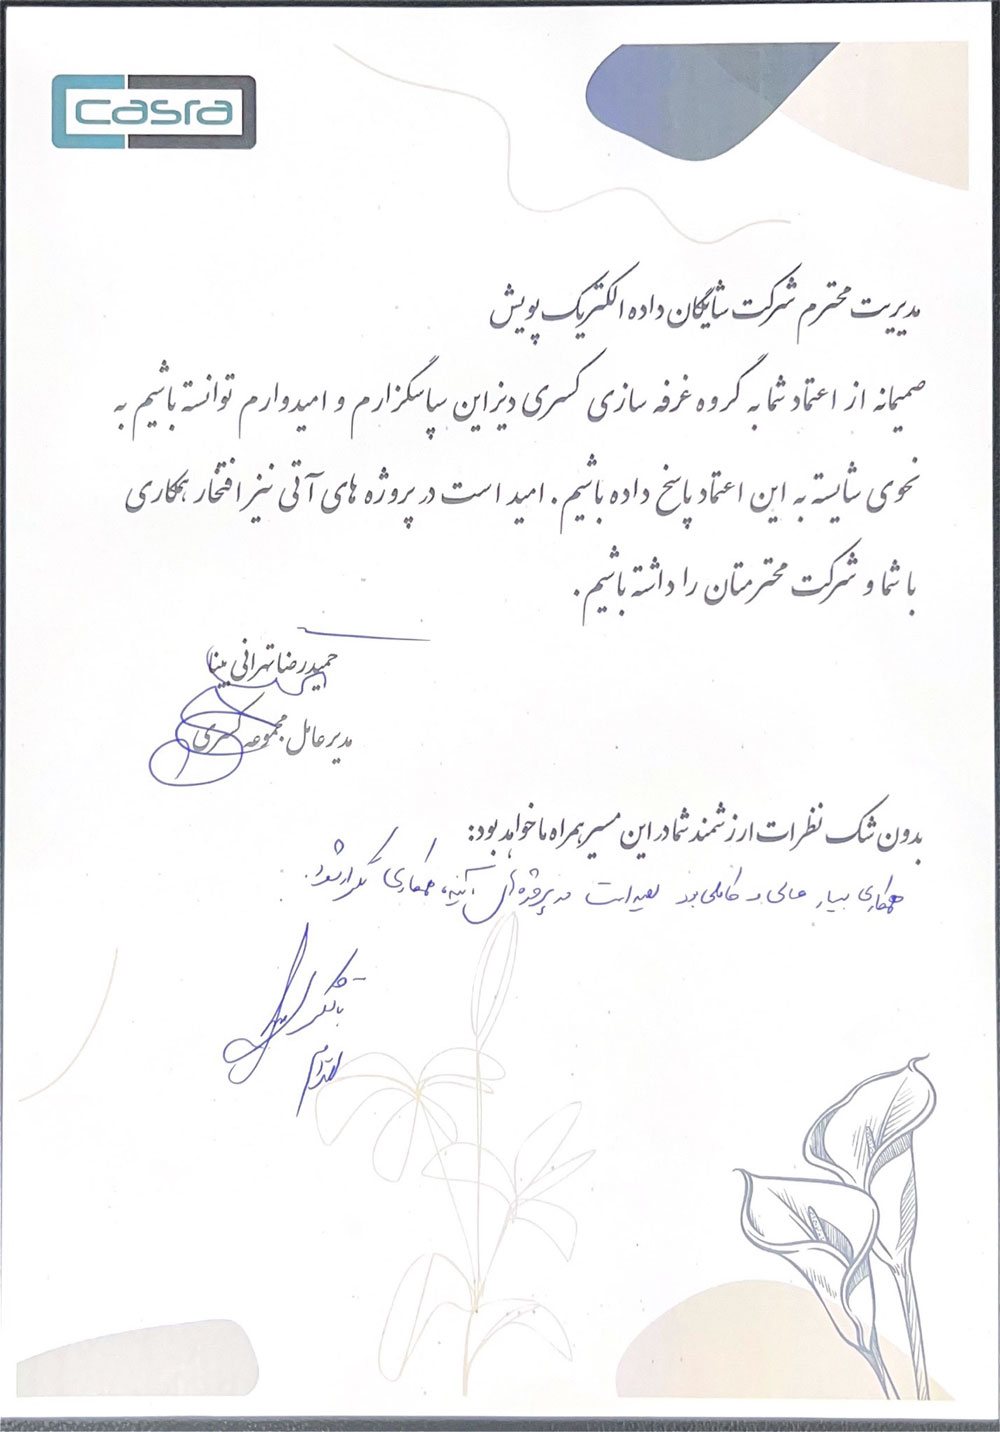 casra
مدیریت محترم شرکت شایگان داده الکتریک پویش
صمیمانه از اعتماد شما به گروه غرفه سازی کسری دیزاین سپاسگزارم و امیدوارم توانسته باشیم به
نحوی شایسته به این اعتماد پاسخ داده باشیم. امید است در پروژه های آتی نیز افتخار همکاری
با شما و شرکت محترمتان را داشته باشیم.
حمیدرضا تهرانی بینا
مدیرعامل مجموعه کسری
بدون شک نظرات ارزشمند شما در این مسیر همراه ما خواهد بود:
همکاری بسیار عالی و کاملی بود امید است در پروژه‌های آینده، همکاری تکرار شود.
با تشکر